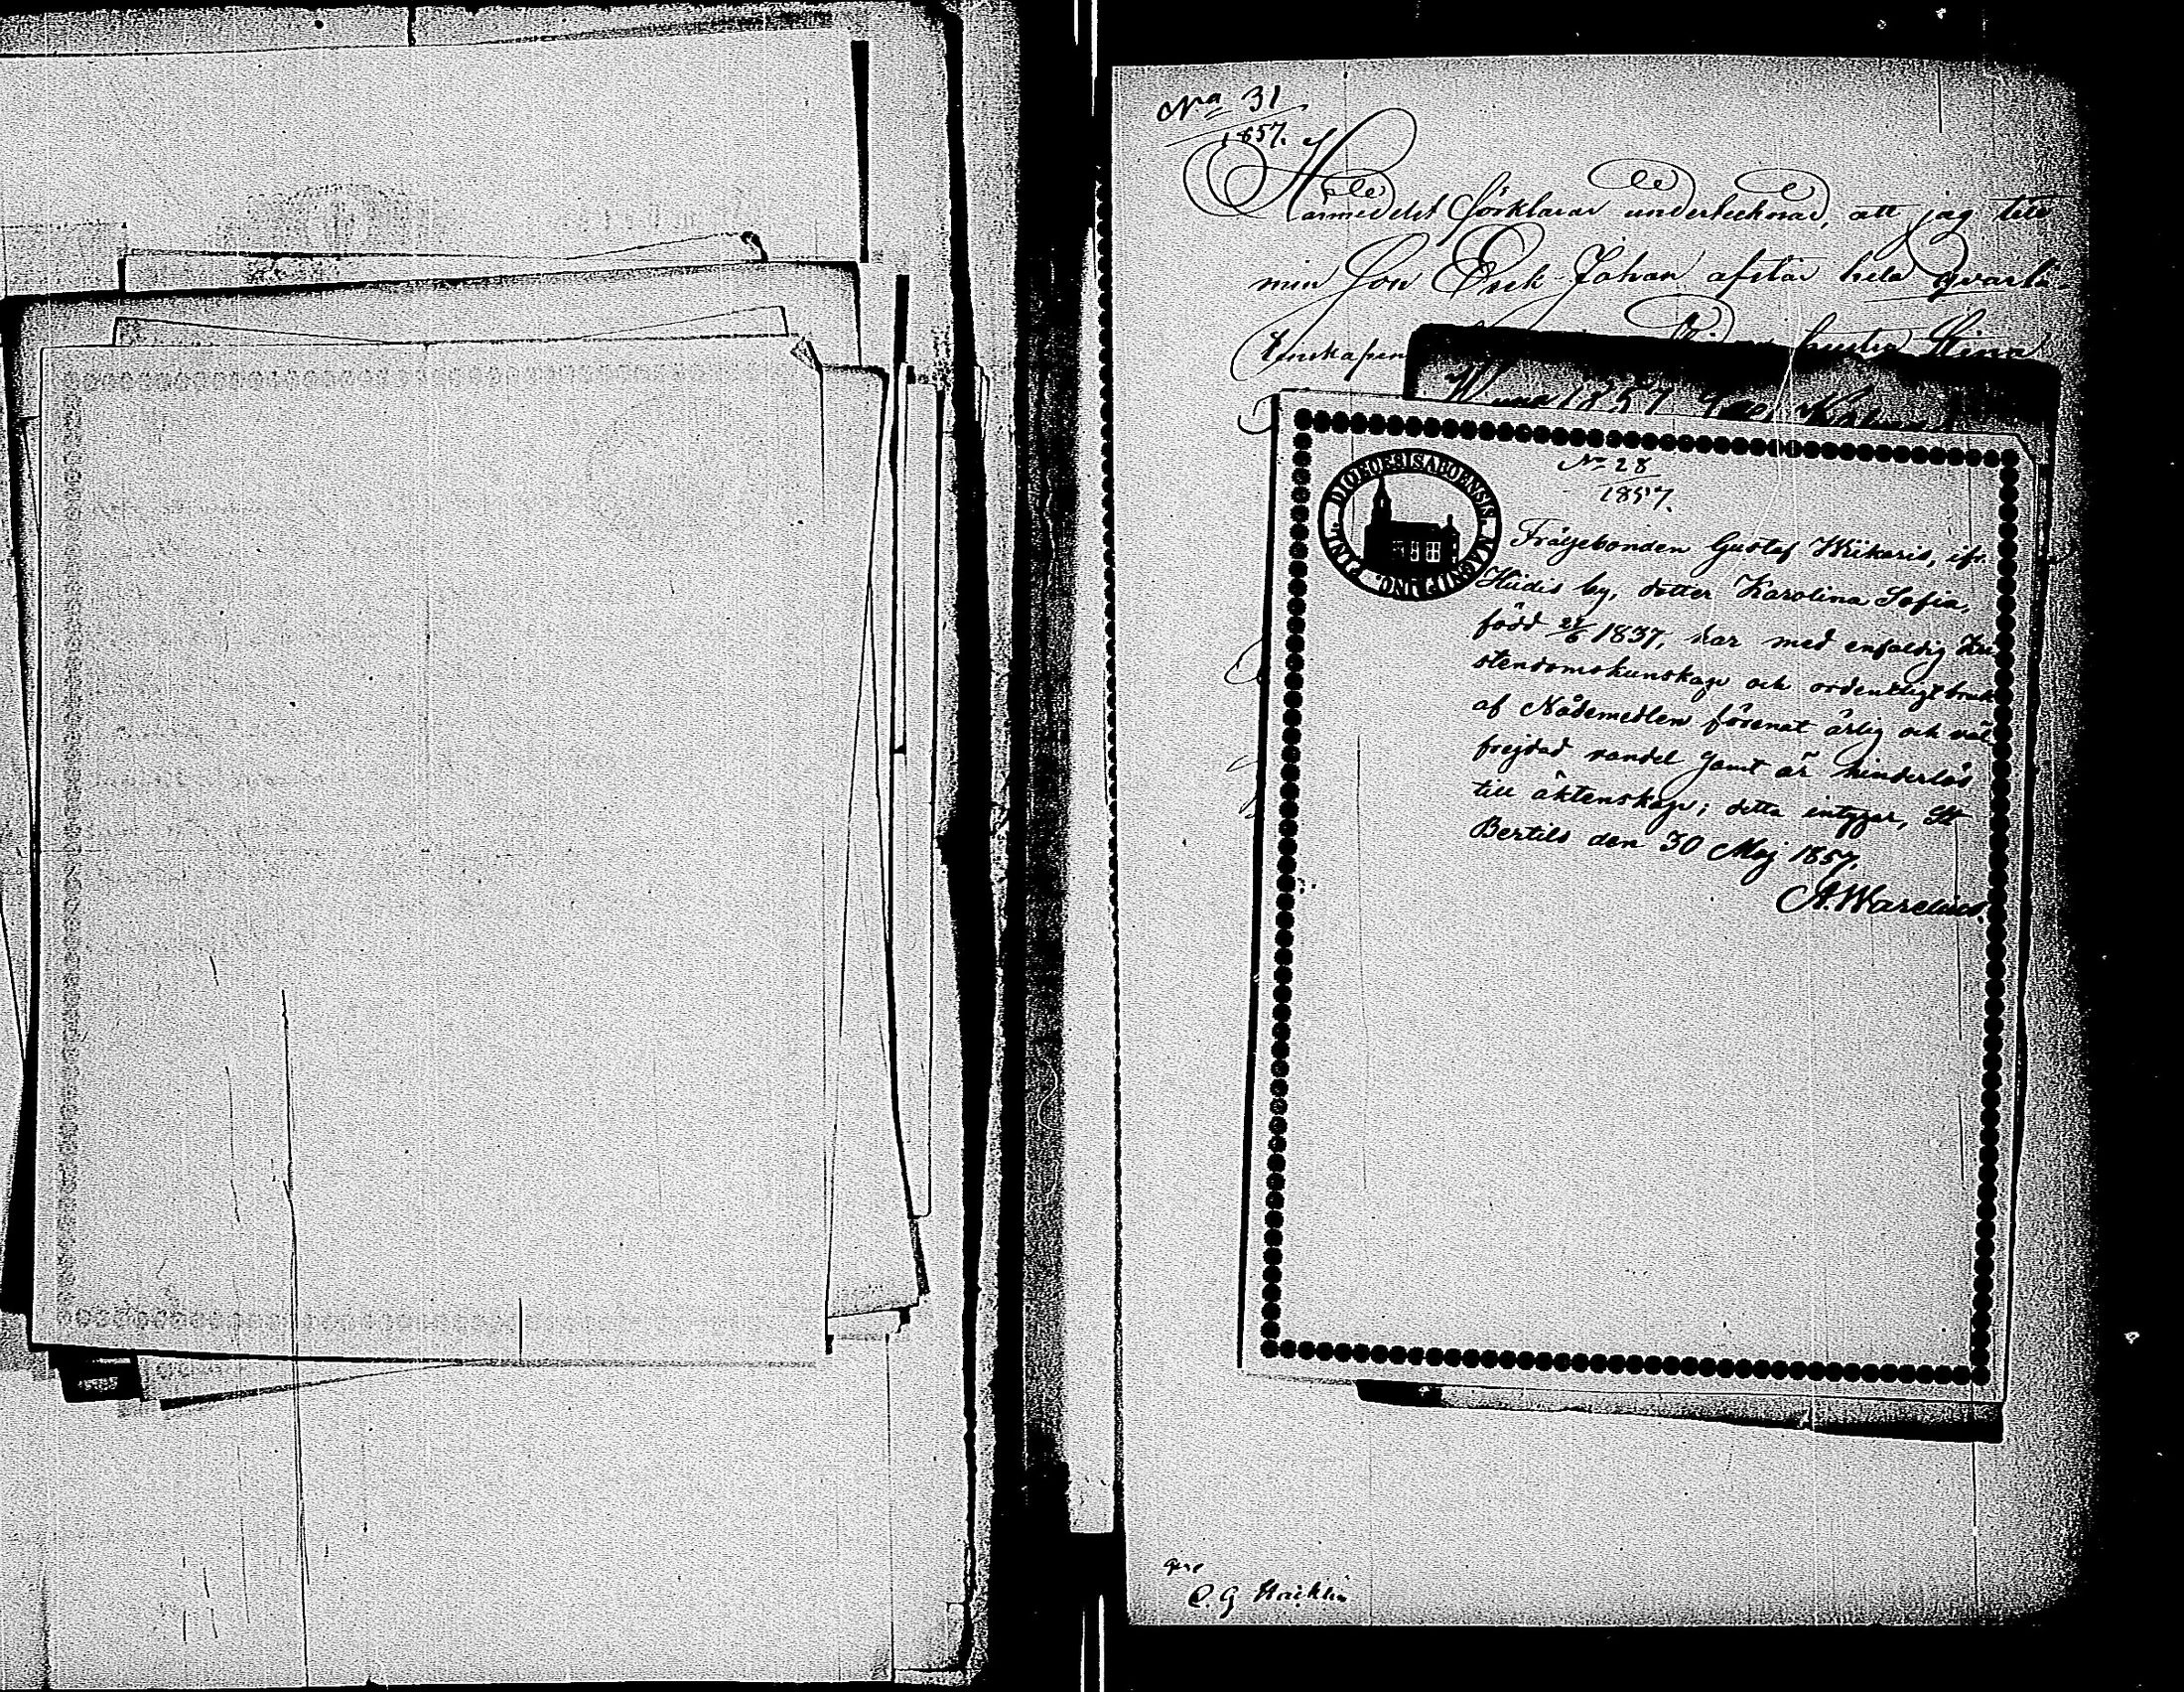 No 31
1857.
Härmedelst förklarar undertecknad, att jag till
min Son Erik Johan afstår hela qvarlå-
tenskapen hustru Stina
1857
No 28
1857.
DIOECESIS ABOENSIS MAGNI PRINC. FINL.
Frälsebonden Gustaf Wiikaris, ifr.
Hiidis by, dotter Karolina Sofia,
född 21/6 1837, har med enfaldig Kri
stendomskunskap och ordentligt bruk
af Nådemedlen förenat ärlig och väl
frejdad vandel samt är hinderlös
till äktenskap; detta intygar, St
Bertils den 30 Maj 1857.
A. Warelius.
C. G